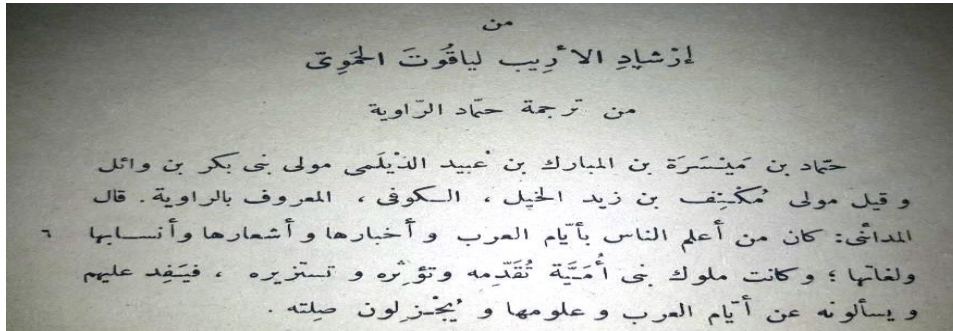 من
إرْشادِ الأرِيب لياقُوتَ الحَمَوِىّ
من ترجمة حمّاد الرّاوية
حمّاد بن مَيْسَرَة بن المبارك بن عبيد الدَّيْلَمى مولى بنى بكر بن وائل
وقيل مولى مُكْنِف بن زيد الخيل ، الكوفى ، المعروف بالراوية . قال
المدائنى : كان من أعلم الناس بأيّام العرب وأخبارها وأشعارها وأنسابها ٦
ولغاتها ؛ وكانت ملوك بنى أُمَيَّة تُقَدِّمه وتؤثِره وتستزيره ، فيَفِد عليهم
ويسألونه عن أيّام العرب وعلومها ويُجْزِلون صِلته .